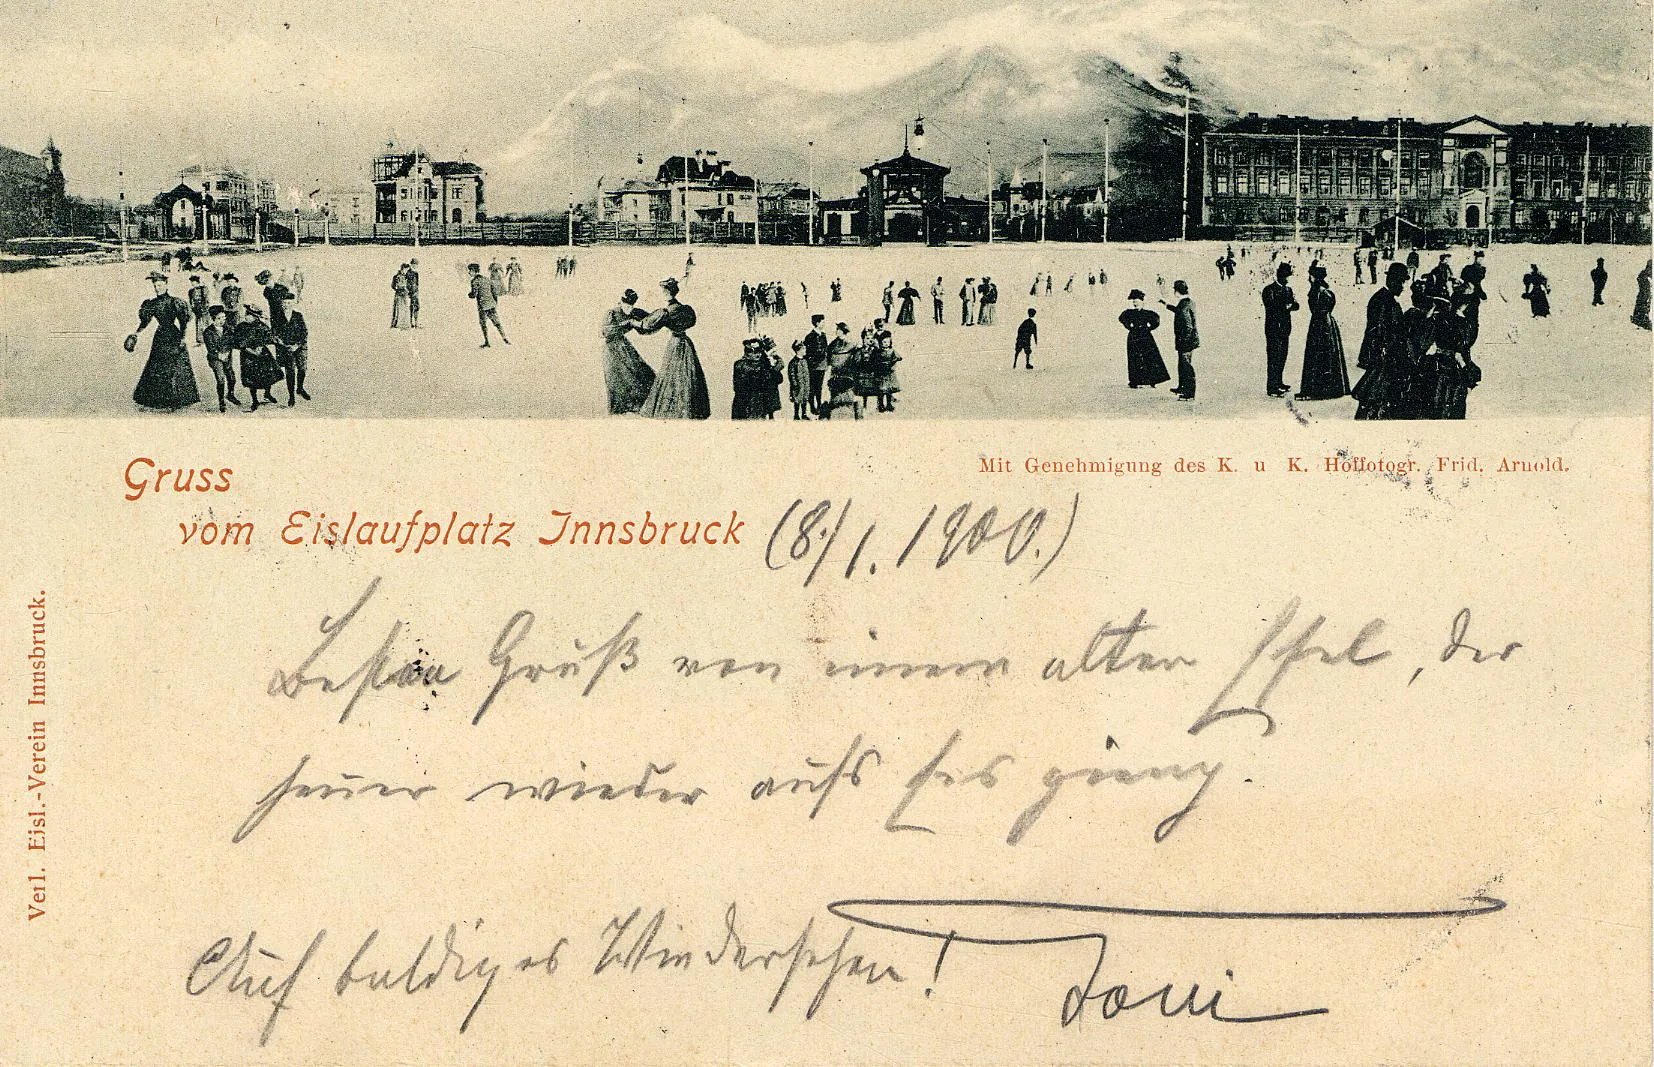 Gruss
vom Eislaufplatz Innsbruck (8./1. 1900.)
Mit Genehmigung des K. u K. Hoffotogr. Frid. Arnold.
Besten Gruß von einem alten Esel, der
heuer wieder aufs Eis gieng.
Auf baldiges Wiedersehen!
Toni
Verl. Eisl.-Verein Innsbruck.